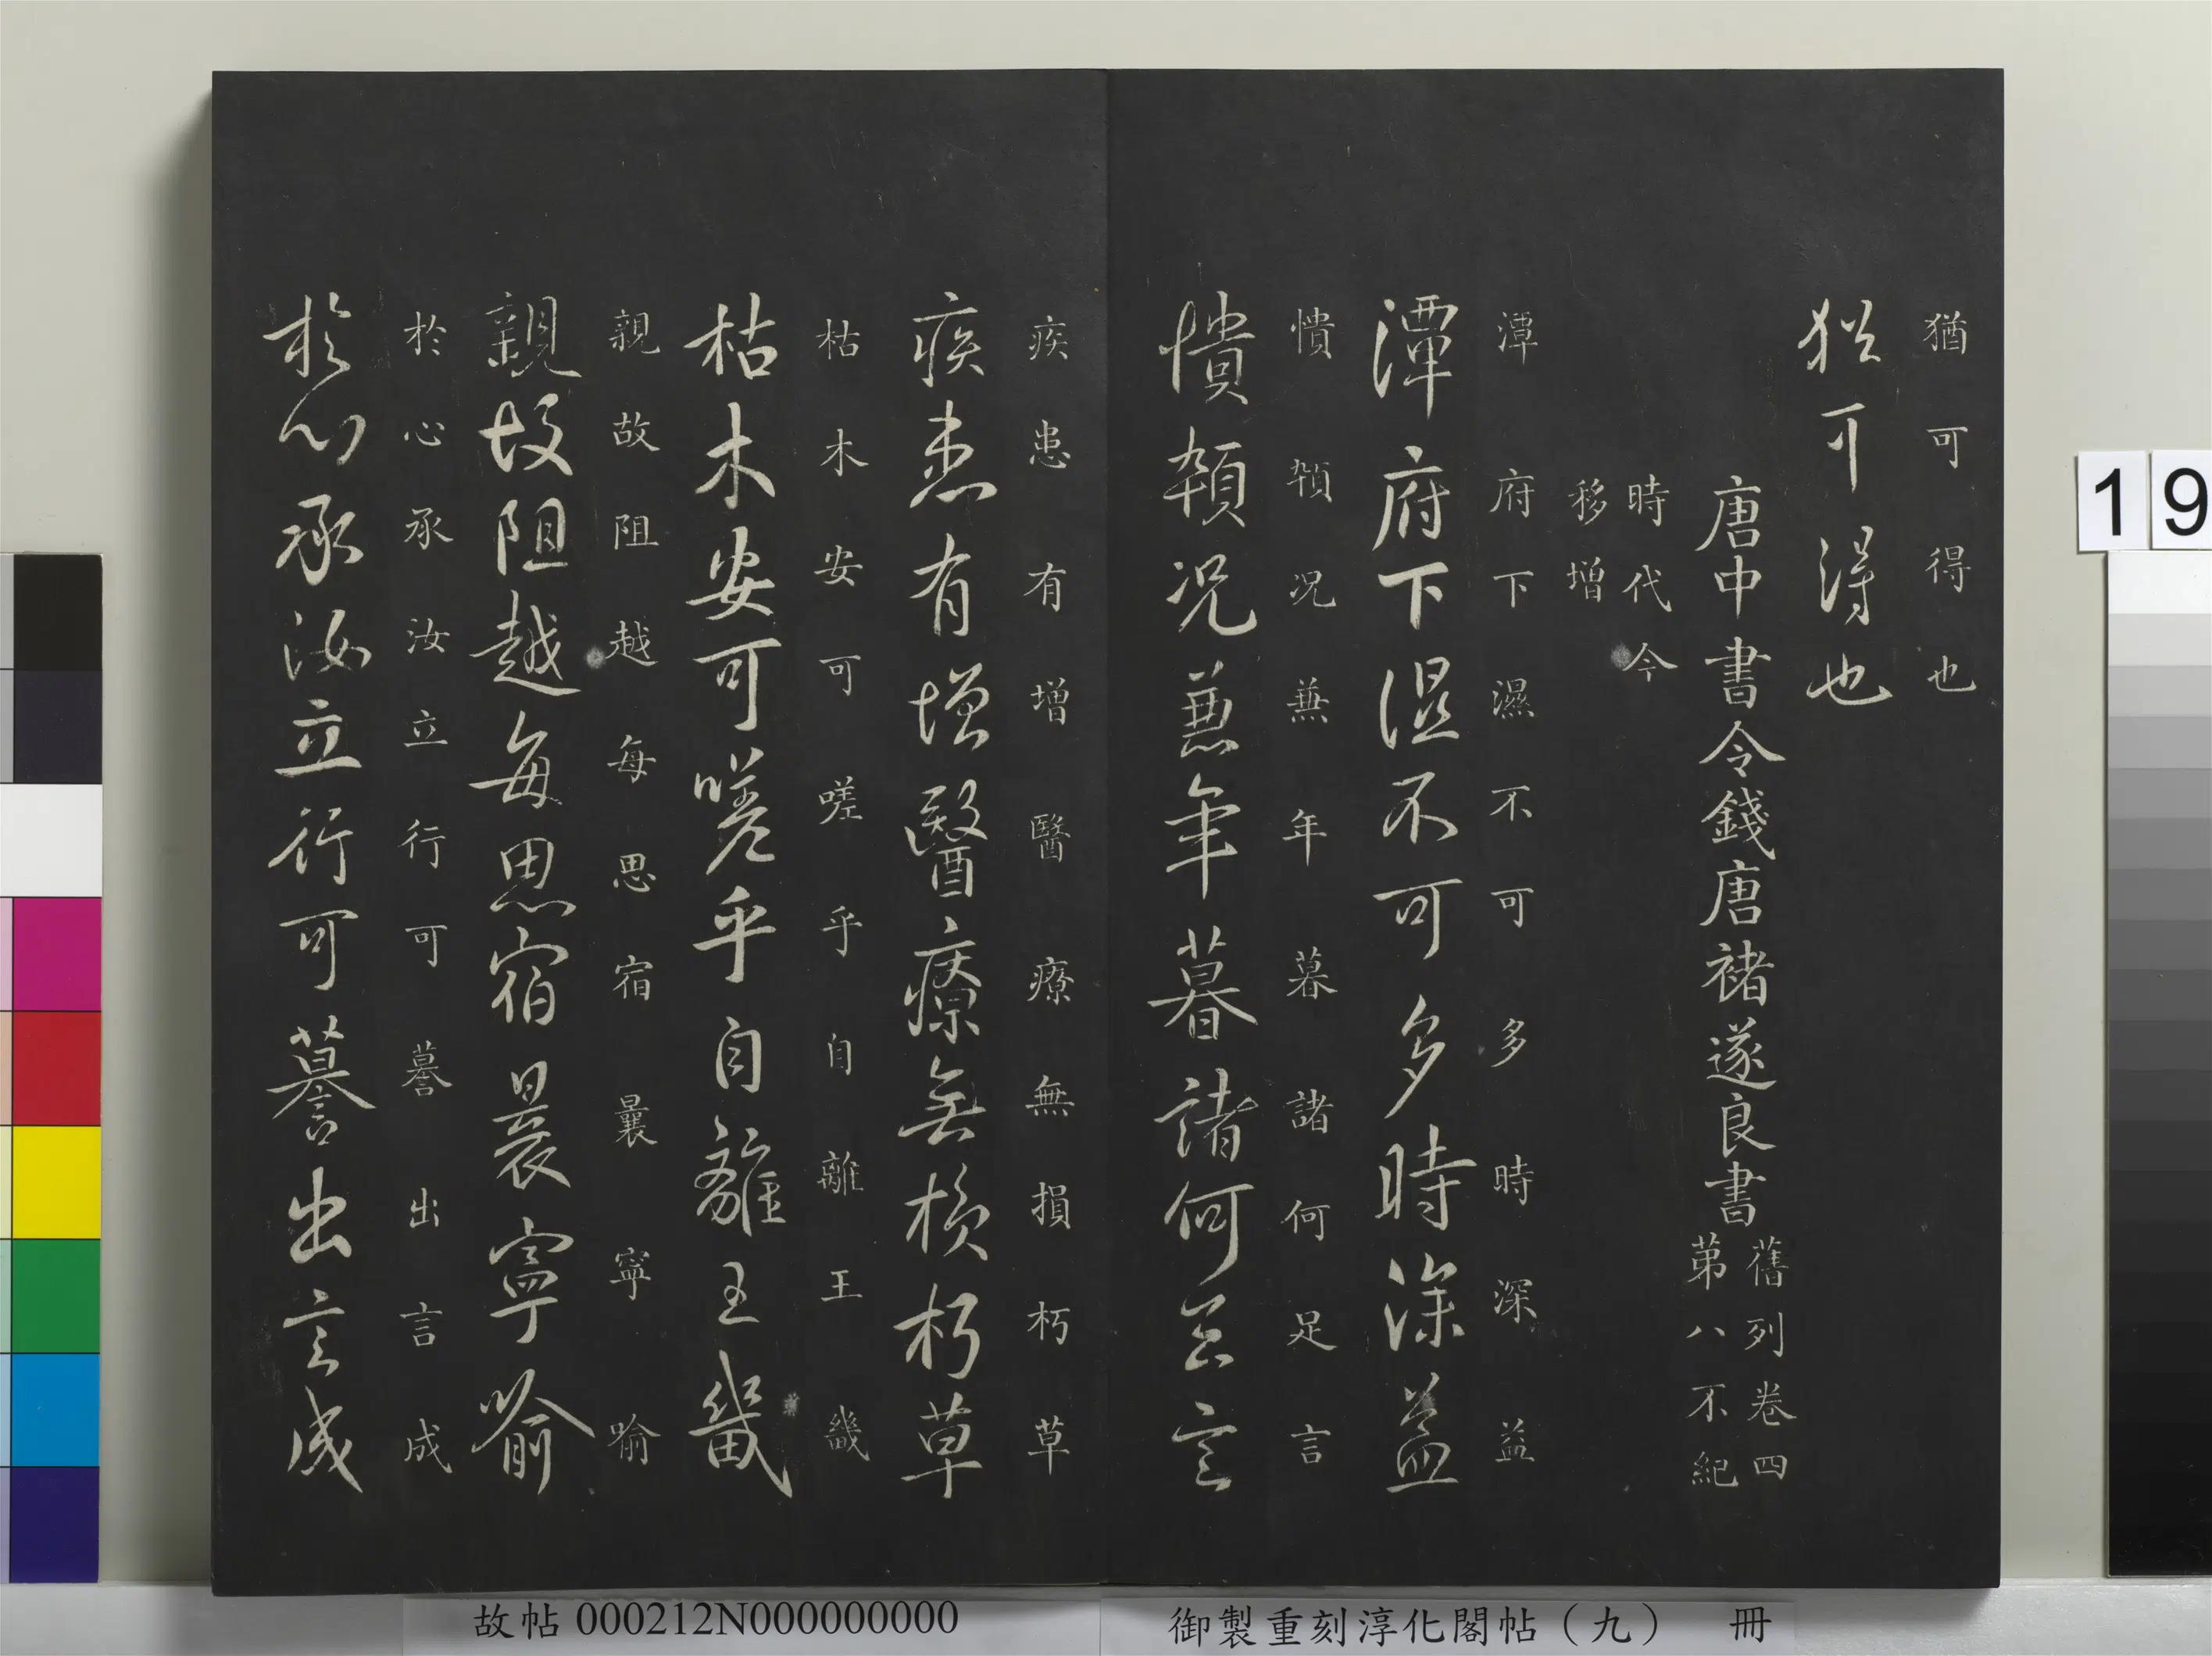 猶可得也
猶可得也
唐中書令錢唐褚遂良書
舊列卷四
第八不紀
時代今
移增
潭府下濕不可多時深益
潭府下濕不可多時深益
憒頓況蕪年暮諸何足言
憒頓況蕪年暮諸何足言
疾患有增醫療無損朽草
疾患有增醫療無損朽草
枯木安可嗟乎自離王畿
枯木安可嗟乎自離王畿
親故阻越每思宿曩寧喻
親故阻越每思宿曩寧喻
於心承汝立行可蕃出言成
於心承汝立行可出言成
19
故帖000212N000000000
御製重刻淳化閣帖（九） 冊